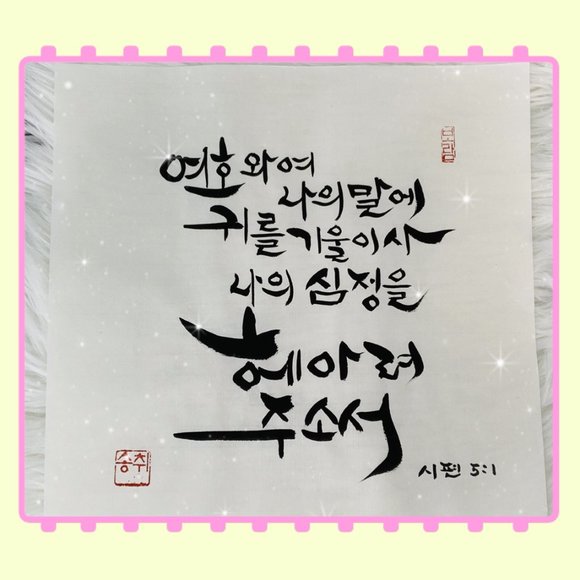 보람
여호와여
나의 말에
귀를 기울이사
나의 심정을
헤아려
주소서
시편 5:1
송취